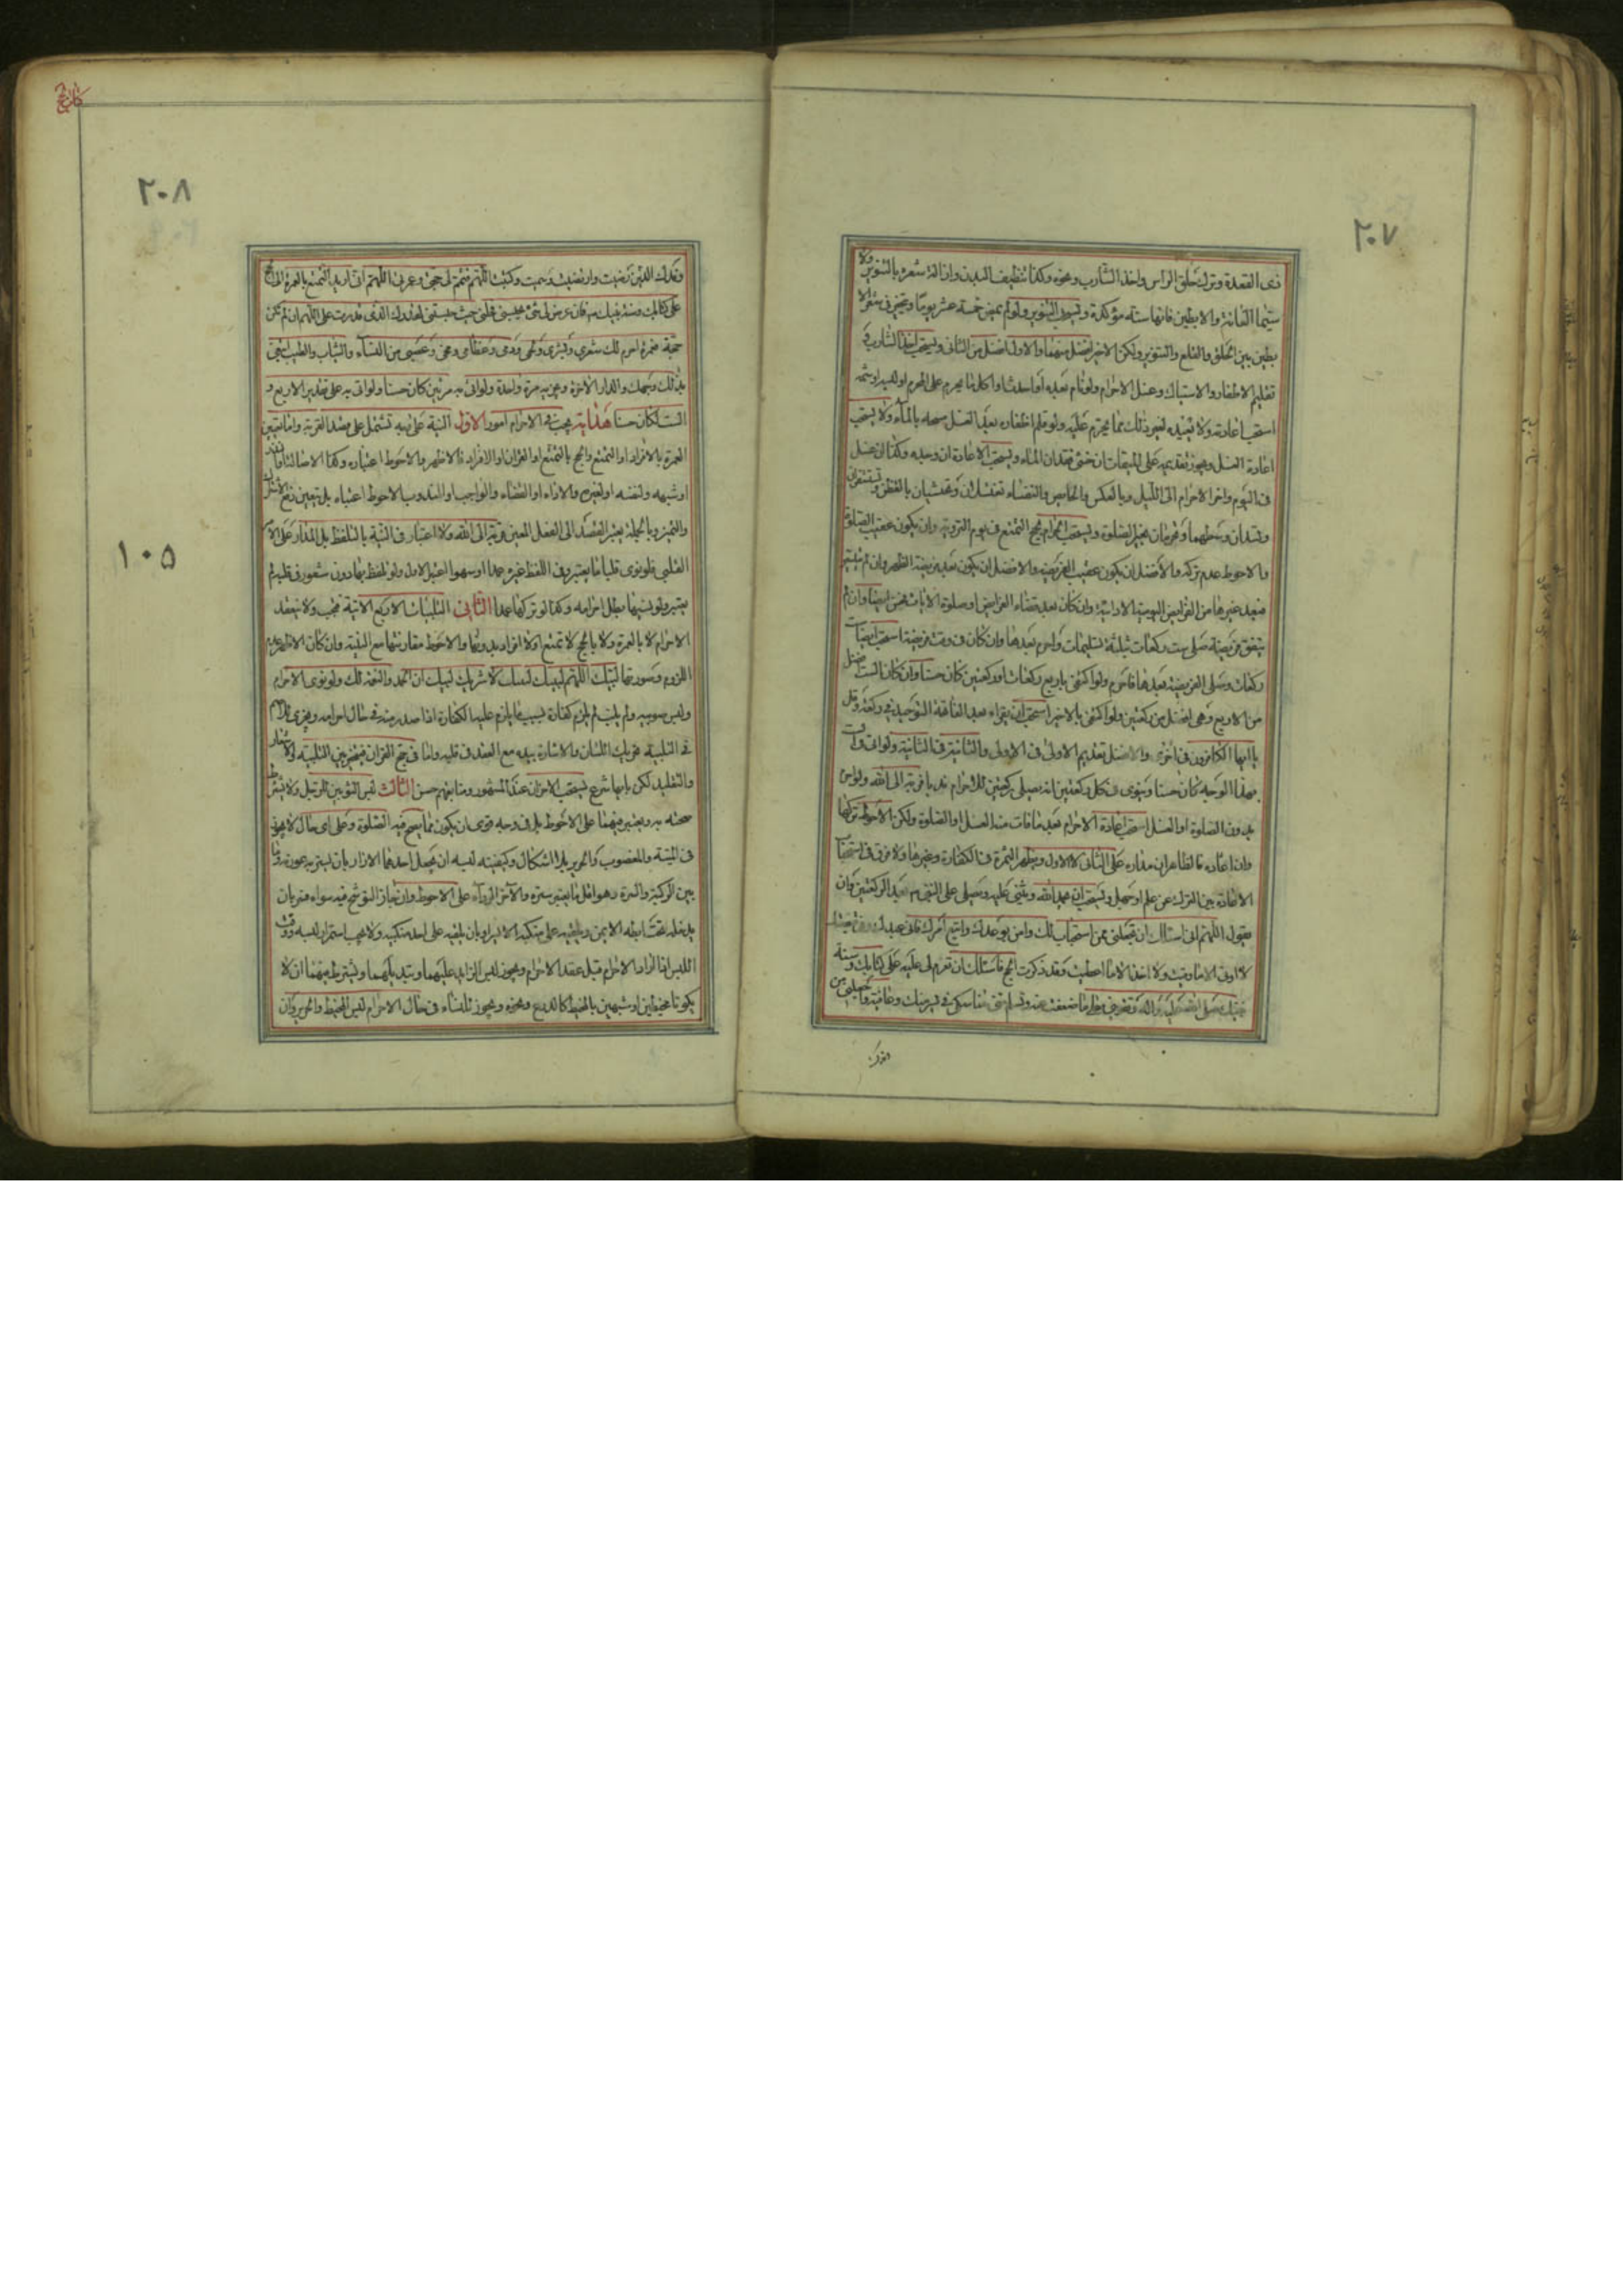 ٢٠٧
ذى القعدة وترك حلق الراس واخذ الشارب ونحوه وكذا تنظيف البدن وازالة شعره بالتنوير ولا
سيما العانة والابطين فانها سنة مؤكدة ويستحب التنوير ولو لم يمض خمسة عشر يوما ويتخير فى شعر الا
بطين بين الحلق والقلع والتنوير ولكن الاخير افضل منهما والاول افضل من الثانى ويستحب اخذ الشارب و
تقليم الاظفار والاستياك وغسل الاحرام ولو نام بعده او احدث او اكل ما يحرم على المحرم او لبسه او شمه
استحب اعادته ولا يعيده لغير ذلك مما يحرم عليه ولو قلم اظفاره بعد الغسل مسحه بالماء ولا يستحب
اعادة الغسل ويجوز تقديمه على الميقات ان خشى فقدان الماء ويستحب الاعادة ان وجده وكذا ان غسل
فى اليوم واخر الاحرام الى الليل وبالعكس والحايض والنفساء تغتسلان وتحتشيان بالقطن وتستثفران
وتشدان وسطهما وتحرمان بغير الصلوة ويستحب احرام حج التمتع فى يوم التروية وان يكون عقيب الصلوة
والاحوط عدم تركه والافضل ان يكون عقيب الفريضة والافضل ان يكون بعد فريضة الظهر وان لم يتيسر
فبعد غيرها من الفرايض اليومية الادائية وان كان بعد قضاء الفرايض او صلوة الايات فحسن ايضا وان لم
يتفق فريضة صلى ست ركعات بثلثة تسليمات واحرم بعدها وان كان فى وقت فريضة استحب ايضا ست
ركعات وصلى الفريضة بعدها فاحرم ولو اكتفى باربع ركعات او ركعتين كان حسنا وان كان الست افضل
من الاربع وهى افضل من ركعتين ولو اكتفى بالاخير استحب ان يقراء بعد الفاتحة التوحيد فى ركعة وقل
يا ايها الكافرون فى اخرى والافضل تقديم الاولى فى الاولى والثانية فى الثانية ولو اتى
بهذا الوجه كان حسنا وينوى فى كل ركعتين انه يصلى ركعتين للاحرام ندبا قربة الى الله ولو احرم
بدون الصلوة او الغسل استحب اعادة الاحرام بعد ما فات منه الغسل او الصلوة ولكن الاحوط تركها
وان اعاده فالظاهر ان مداره على الثانى لا الاول ويظهر الثمرة فى الكفارة وغيرها ولا فرق فى استحباب
الاعادة بين الترك عن علم او جهل ويستحب ان يحمد الله ويثنى عليه ويصلى على النبى ص بعد الركعتين وان
يقول اللهم انى اسئلك ان تجعلنى ممن استجاب لك وامن بوعدك واتبع امرك فانى عبدك وفى قبضتك
لا اوقى الا ما وقيت ولا اخذ الا ما اعطيت وقد ذكرت الحج فاسئلك ان تعزم لى عليه على كتابك وسنة
نبيك صلى الله عليه واله وتقوينى على ما ضعفت عنه وتسلم منى مناسكى فى يسر منك وعافية واجعلنى من
وفدك
٢٠٨
وفدك الذين رضيت وارتضيت وسميت وكتبت اللهم فتمم لى حجى وعمرتى اللهم انى اريد التمتع بالعمرة الى الحج
على كتابك وسنة نبيك ص فان عرض لى شئ يحبسنى فحلنى حيث حبستنى لقدرك الذى قدرت على اللهم ان لم تكن
حجة فعمرة احرم لك شعرى وبشرى ولحمى ودمى وعظامى ومخى وعصبى من النساء والثياب والطيب ابتغى
بذلك وجهك والدار الاخرة ويجزيه مرة واحدة ولو اتى به مرتين كان حسنا ولو اتى به على تقدير الاربع و
الست لكان حسنا هداية يجب فى الاحرام امور الاول النية على نهج تشتمل على قصد القربة واما تعيين
العمرة بالافراد او التمتع والحج بالتمتع او القران او الافراد فالاظهر والاحوط اعتباره وكذا الاصالة
او شبهه ولنفسه او لغيره والاداء او القضاء والواجب او المندوب بالاحوط اعتباره بل يتعين
والتميز وبالجملة يعتبر القصد الى الفعل المعين قربة الى الله ولا اعتبار فى النية بالتلفظ بل المدار على الامر
القلبى فلو نوى قلبا ما يعتبر وفى اللفظ غيره عمدا او سهوا اعتبر الاول ولو تلفظ بها دون شعور فى قلبه لم
يعتبر ولو نسيها بطل احرامه وكذا لو تركها عمدا الثانى التلبيات الاربع الاتية فيجب ولا ينعقد
الاحرام لا بالعمرة ولا بالحج لا تمتع او لا افراد بدونها والاحوط مقارنتها مع النية وان كان الاظهر عدم
اللزوم وصورتها لبيك اللهم لبيك لبيك لا شريك لبيك ان الحمد والنعمة لك ولو نوى الاحرام
ولبس ثوبيه ولم يلب لم يلزم كفارة بسبب ما يلزم عليه الكفارة اذا صدر منه فى حال احرامه ويجزى للاخرس
فى التلبية تحريك اللسان والاشارة بيده مع العقد فى قلبه واما فى حج القران فيتخير بين التلبية والاشعار
والتقليد لكن بايها شرع يستحب الاخر ان عند المشهور ومتابعتهم حسن الثالث لبس الثوبين للرجل ولا يشترط
صحته به ويعتبر فيهما على الاحوط بل فى وجه قوى ان يكون مما يصح فيه الصلوة وعلى اى حال لا يجوز
فى الميتة والمغصوب والحرير بلا اشكال وكيفيته لبسه ان يجعل احدهما الازار بان يستر به عورته وما
بين الركبة والسرة وهو اقل ما يعتبر ستره والاخر الرداء على الاحوط وان جاز التوشح فيه سواء فتر بان
يدخله تحت ابطه الايمن ويلقيه على منكبه الايسر او بان يلقيه على احد منكبيه ولا يجب استمرار لبسه ووقت
اللبس اذا اراد الاحرام قبل عقد الاحرام ويجوز لبس الزايد عليهما وتبديلهما ويشترط فيهما ان لا
يكونا مخيطين او شبهين بالمخيط كالدرع ونحوه ويجوز للنساء فى حال الاحرام لبس المخيط والحرير وان
١٠٥